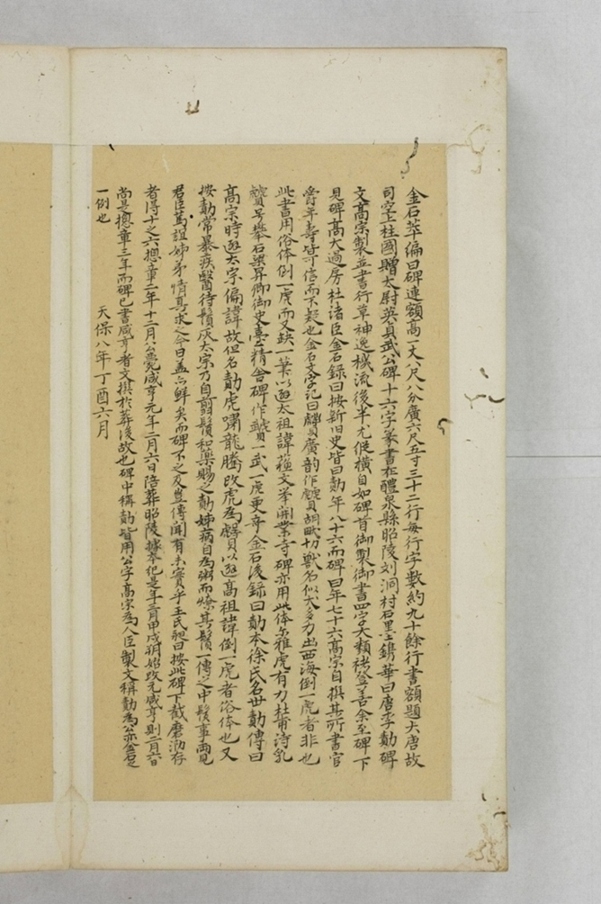 金石萃編曰碑連額高一丈八尺八分廣六尺五寸三十二行每行字數約九十餘行書額題大唐故
司空上柱國贈太尉英貞武公碑十六字篆書在醴泉縣昭陵刘洞村石墨鐫華曰唐李勣碑
文高宗製並書行草神逸機流後半尤従横自如碑首御製御書四字大類褚登善余至碑下
見碑高大過房杜諸臣金石錄曰按新旧史皆曰勣年八十六而碑曰年七十六高宗自撰其所書官
爵年壽皆可信而不疑也金石文字記曰贙廣韵作贙胡畎切獸名似犬多力出西海倒一虎者非也
此書用俗体倒一虎而又缺一筆以避太祖諱蘓文挙開業寺碑亦用此体尓雅虎有力杜甫詩乳
贙号攀石梁昇卿御史臺精舍碑作贙一武一虎更奇金石後録曰勣本徐氏名世勣傳曰
高宗時避太宗偏諱故但名勣虎嘯龍騰改虎為贙以避高祖諱倒一虎者俗体也又
按勣常暴疾醫待鬚灰太宗乃自翦鬚和藥賜之勣姉病自為粥而燎其鬚一傳之中鬚事両見
君臣篤誼姉弟情真求之今日盖亦鮮矣而碑不之及豈傳聞有失實乎王氏昶曰按此碑下截磨泐存
者得十之六總章二年十二月公薨咸亨元年二月六日陪葬昭陵據本紀是年三月甲戌朔始改元咸亨則二月六日
尚是總章三年而碑已書咸亨者文撰於葬後故也碑中稱勣皆用公字高宗為人臣製文稱勣為公亦金石之
一例也
天保八年丁酉六月